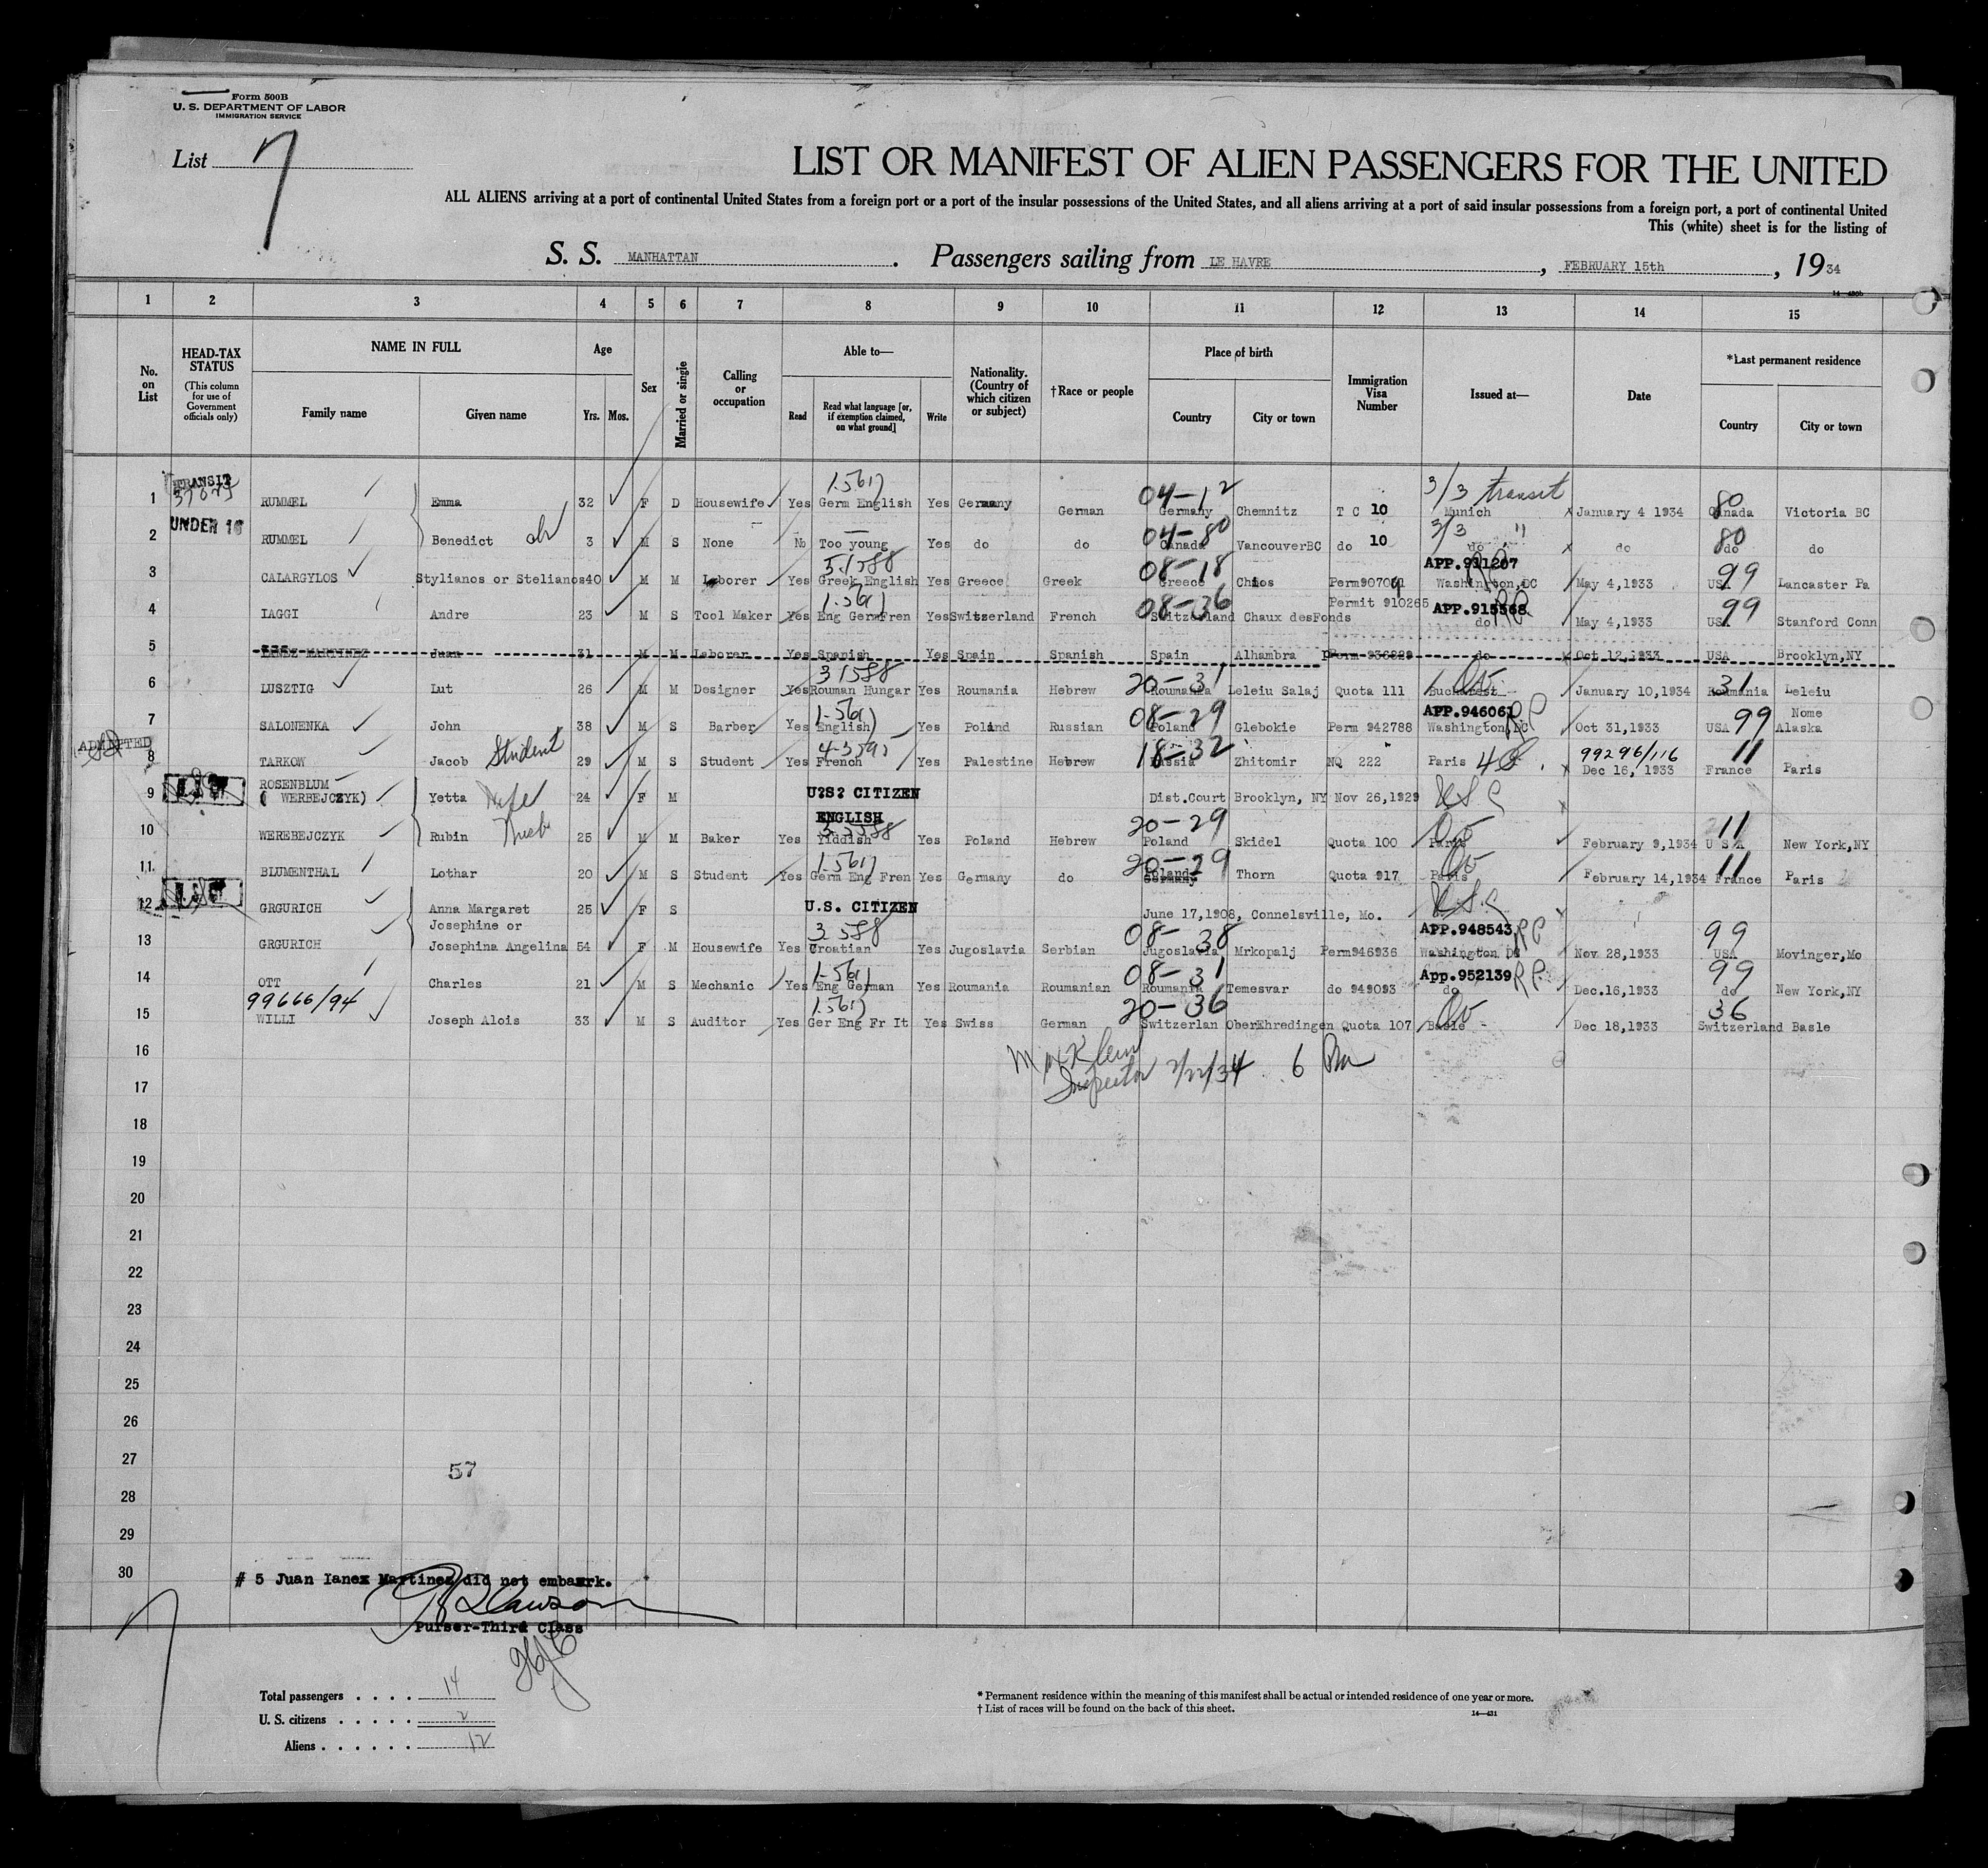 Form 500B
U. S. DEPARTMENT OF LABOR
IMMIGRATION SERVICE
List 7
LIST OR MANIFEST OF ALIEN PASSENGERS FOR THE UNITED
ALL ALIENS arriving at a port of continental United States from a foreign port or a port of the insular possessions of the United States, and all aliens arriving at a port of said insular possessions from a foreign port, a port of continental United
This (white) sheet is for the listing of
S. S. MANHATTAN. Passengers sailing from LE HAVRE, FEBRUARY 15th, 1934
14—430b
1 2 3 4 5 6 7 8 9 10 11 12 13 14 15
No. on List
HEAD-TAX STATUS (This column for use of Government officials only)
NAME IN FULL
Family name Given name
Age Yrs. Mos.
Sex
Married or single
Calling or occupation
Able to—
Read Read what language [or, if exemption claimed, on what ground] Write
Nationality. (Country of which citizen or subject)
†Race or people
Place of birth
Country City or town
Immigration Visa Number
Issued at—
Date
*Last permanent residence
Country City or town
TRANSIT 1.5617 04-12 3/3 transit 80
1 RUMMEL Emma 32 F D Housewife Yes Germ English Yes Germany German Germany Chemnitz T C 10 Munich January 4 1934 Canada Victoria BC
UNDER 16 04-80 3/3 " 80
2 RUMMEL Benedict 3 M S None No Too young Yes do do Canada VancouverBC do 10 do do do do
5.1588 08-18 APP.931207 99
3 CALARGYLOS Stylianos or Stelianos 40 M M Laborer Yes Greek English Yes Greece Greek Greece Chios Perm907091 Washington,DC May 4,1933 USA Lancaster Pa
1.561 08-36 APP.915568 99
4 IAGGI Andre 23 M S Tool Maker Yes Eng GermFren Yes Switzerland French Switzerland Chaux desFonds Permit 910265 do May 4,1933 USA Stanford Conn
5 IANEZ MARTINEZ Juan 31 M M Laborer Yes Spanish Yes Spain Spanish Spain Alhambra Perm 936829 do Oct 12,1933 USA Brooklyn,NY
3 1588 20-31 31
6 LUSZTIG Lut 26 M M Designer Yes Rouman Hungar Yes Roumania Hebrew Roumania Leleiu Salaj Quota 111 Bucharest January 10,1934 Roumania Leleiu
1-561 08-29 APP.946061 RP 99
7 SALONENKA John 38 M S Barber Yes English Yes Poland Russian Poland Glebokie Perm 942788 Washington DC Oct 31,1933 USA Nome Alaska
ADMITTED Student 18-32 99296/116 11
8 TARKOW Jacob 29 M S Student Yes French Yes Palestine Hebrew Russia Zhitomir NQ 222 Paris Dec 16, 1933 France Paris
ROSENBLUM
9 ( WERBEJCZYK) Yetta Wife 24 F M U?S? CITIZEN Dist.Court Brooklyn, NY Nov 26,1929 USC
ENGLISH 20-29 11
10 WEREBEJCZYK Rubin 25 M M Baker Yes Yiddish Yes Poland Hebrew Poland Skidel Quota 100 Paris February 9,1934 U S A New York,NY
1.5617 20-29 11
11 BLUMENTHAL Lothar 20 M S Student Yes Germ Eng Fren Yes Germany do Poland Germany Thorn Quota 917 Paris February 14,1934 France Paris
12 GRGURICH Anna Margaret 25 F S U.S. CITIZEN June 17,1908, Connelsville, Mo. USC
3 588 08-38 APP.948543 RP 99
13 GRGURICH Josephine or Josephina Angelina 54 F M Housewife Yes Croatian Yes Jugoslavia Serbian Jugoslavia Mrkopalj Perm946936 Washington DC Nov 28,1933 USA Movinger,Mo
1-561 08-31 App.952139 RP 99
14 OTT Charles 21 M S Mechanic Yes Eng German Yes Roumania Roumanian Roumania Temesvar do 949093 do Dec.16,1933 do New York,NY
99666/94 1.5617 20-36 36
15 WILLI Joseph Alois 33 M S Auditor Yes Ger Eng Fr It Yes Swiss German Switzerlan OberEhredingen Quota 107 Basle Dec 18,1933 Switzerland Basle
16 Klein
17 Inspector 2/22/34 6
18
19
20
21
22
23
24
25
26
27 57
28
29
30
# 5 Juan Ianez Martinez did not embark.
Purser-Third Class
7
Total passengers . . . . 14
U. S. citizens . . . . . 2
Aliens . . . . . . 12
* Permanent residence within the meaning of this manifest shall be actual or intended residence of one year or more.
† List of races will be found on the back of this sheet.
14—431